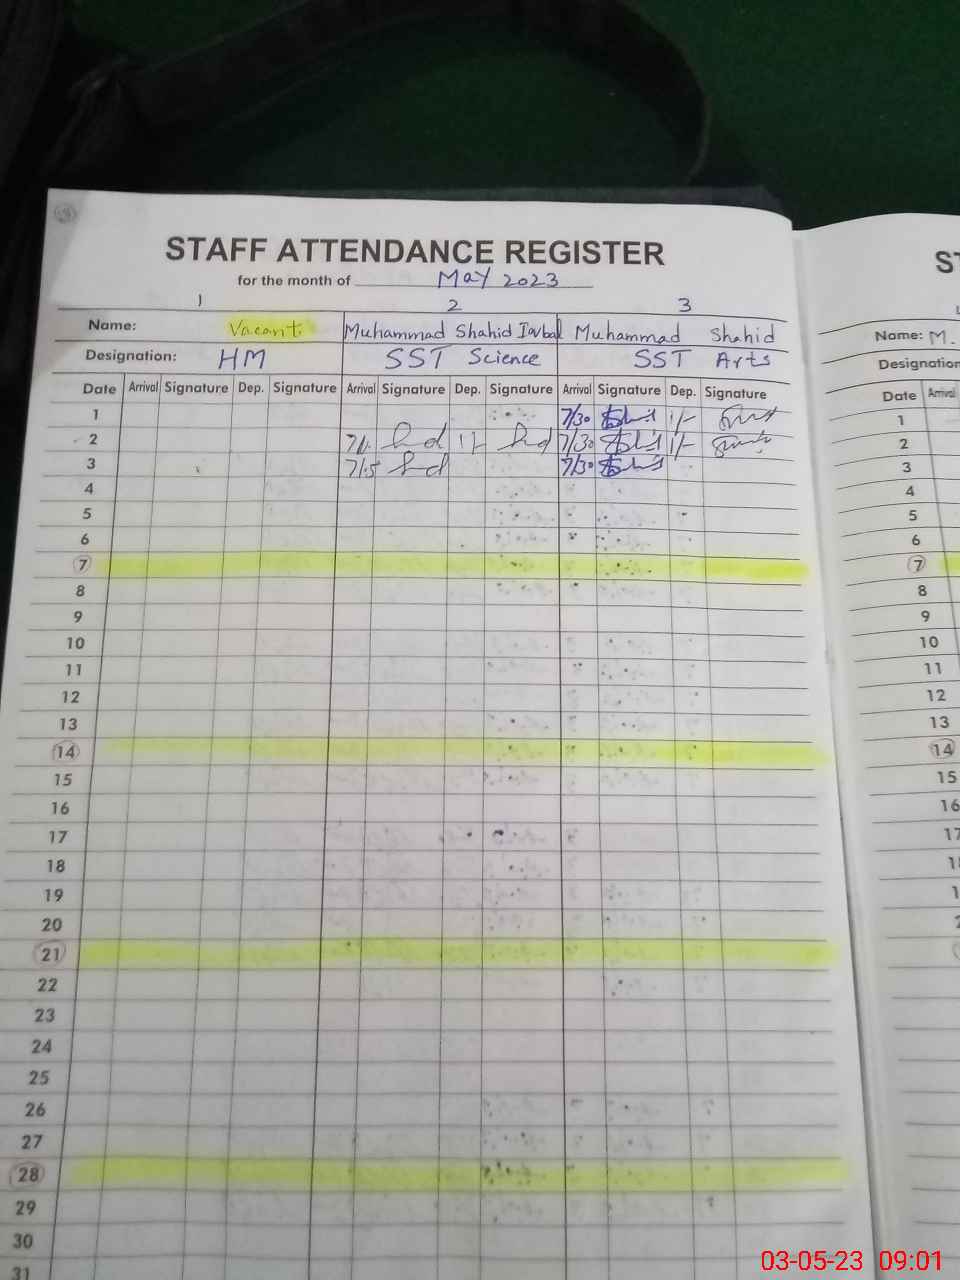 STAFF ATTENDANCE REGISTER
for the month of May 2023
1 2 3
Name: Vacant. Muhammad Shahid Iqbal Muhammad Shahid
Designation: HM SST Science SST Arts
Date Arrival Signature Dep. Signature Arrival Signature Dep. Signature Arrival Signature Dep. Signature
1 7/30 1/-
2 1/- 7/30 1/-
3 7/15 7/30
4
5
6
7
8
9
10
11
12
13
14
15
16
17
18
19
20
21
22
23
24
25
26
27
28
29
30
31
ST
Name: M.
Designation
Date Arrival
1
2
3
4
5
6
7
8
9
10
11
12
13
14
15
16
17
03-05-23 09:01